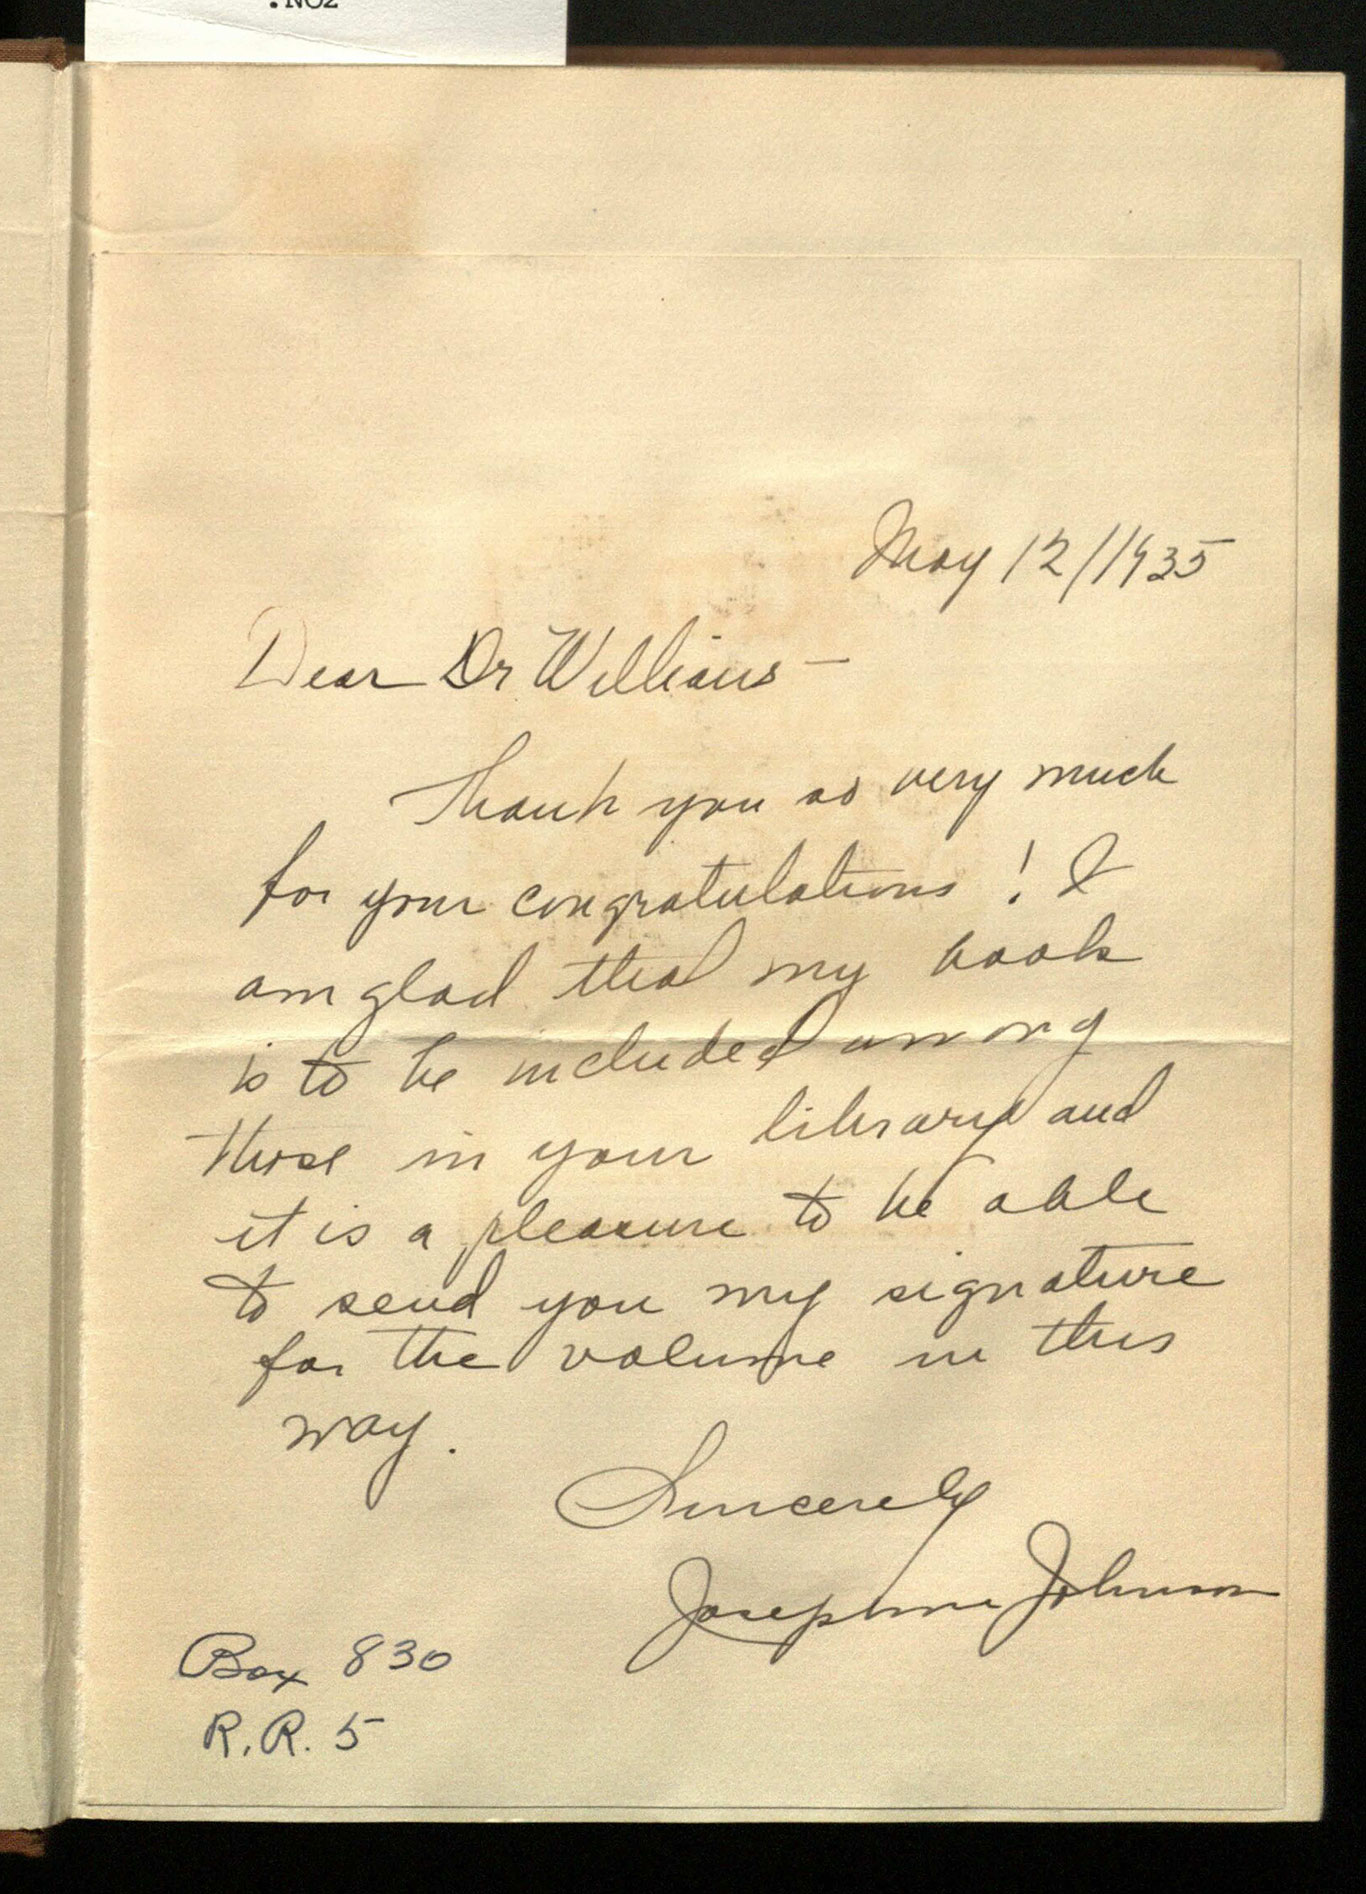 .NO2
May 12/1935
Dear Dr Williams –
Thank you so very much
for your congratulations! I
am glad that my book
is to be included among
those in your library and
it is a pleasure to be able
to send you my signature
for the volume in this
way.
Sincerely
Josephine Johnson
Box 830
R.R. 5